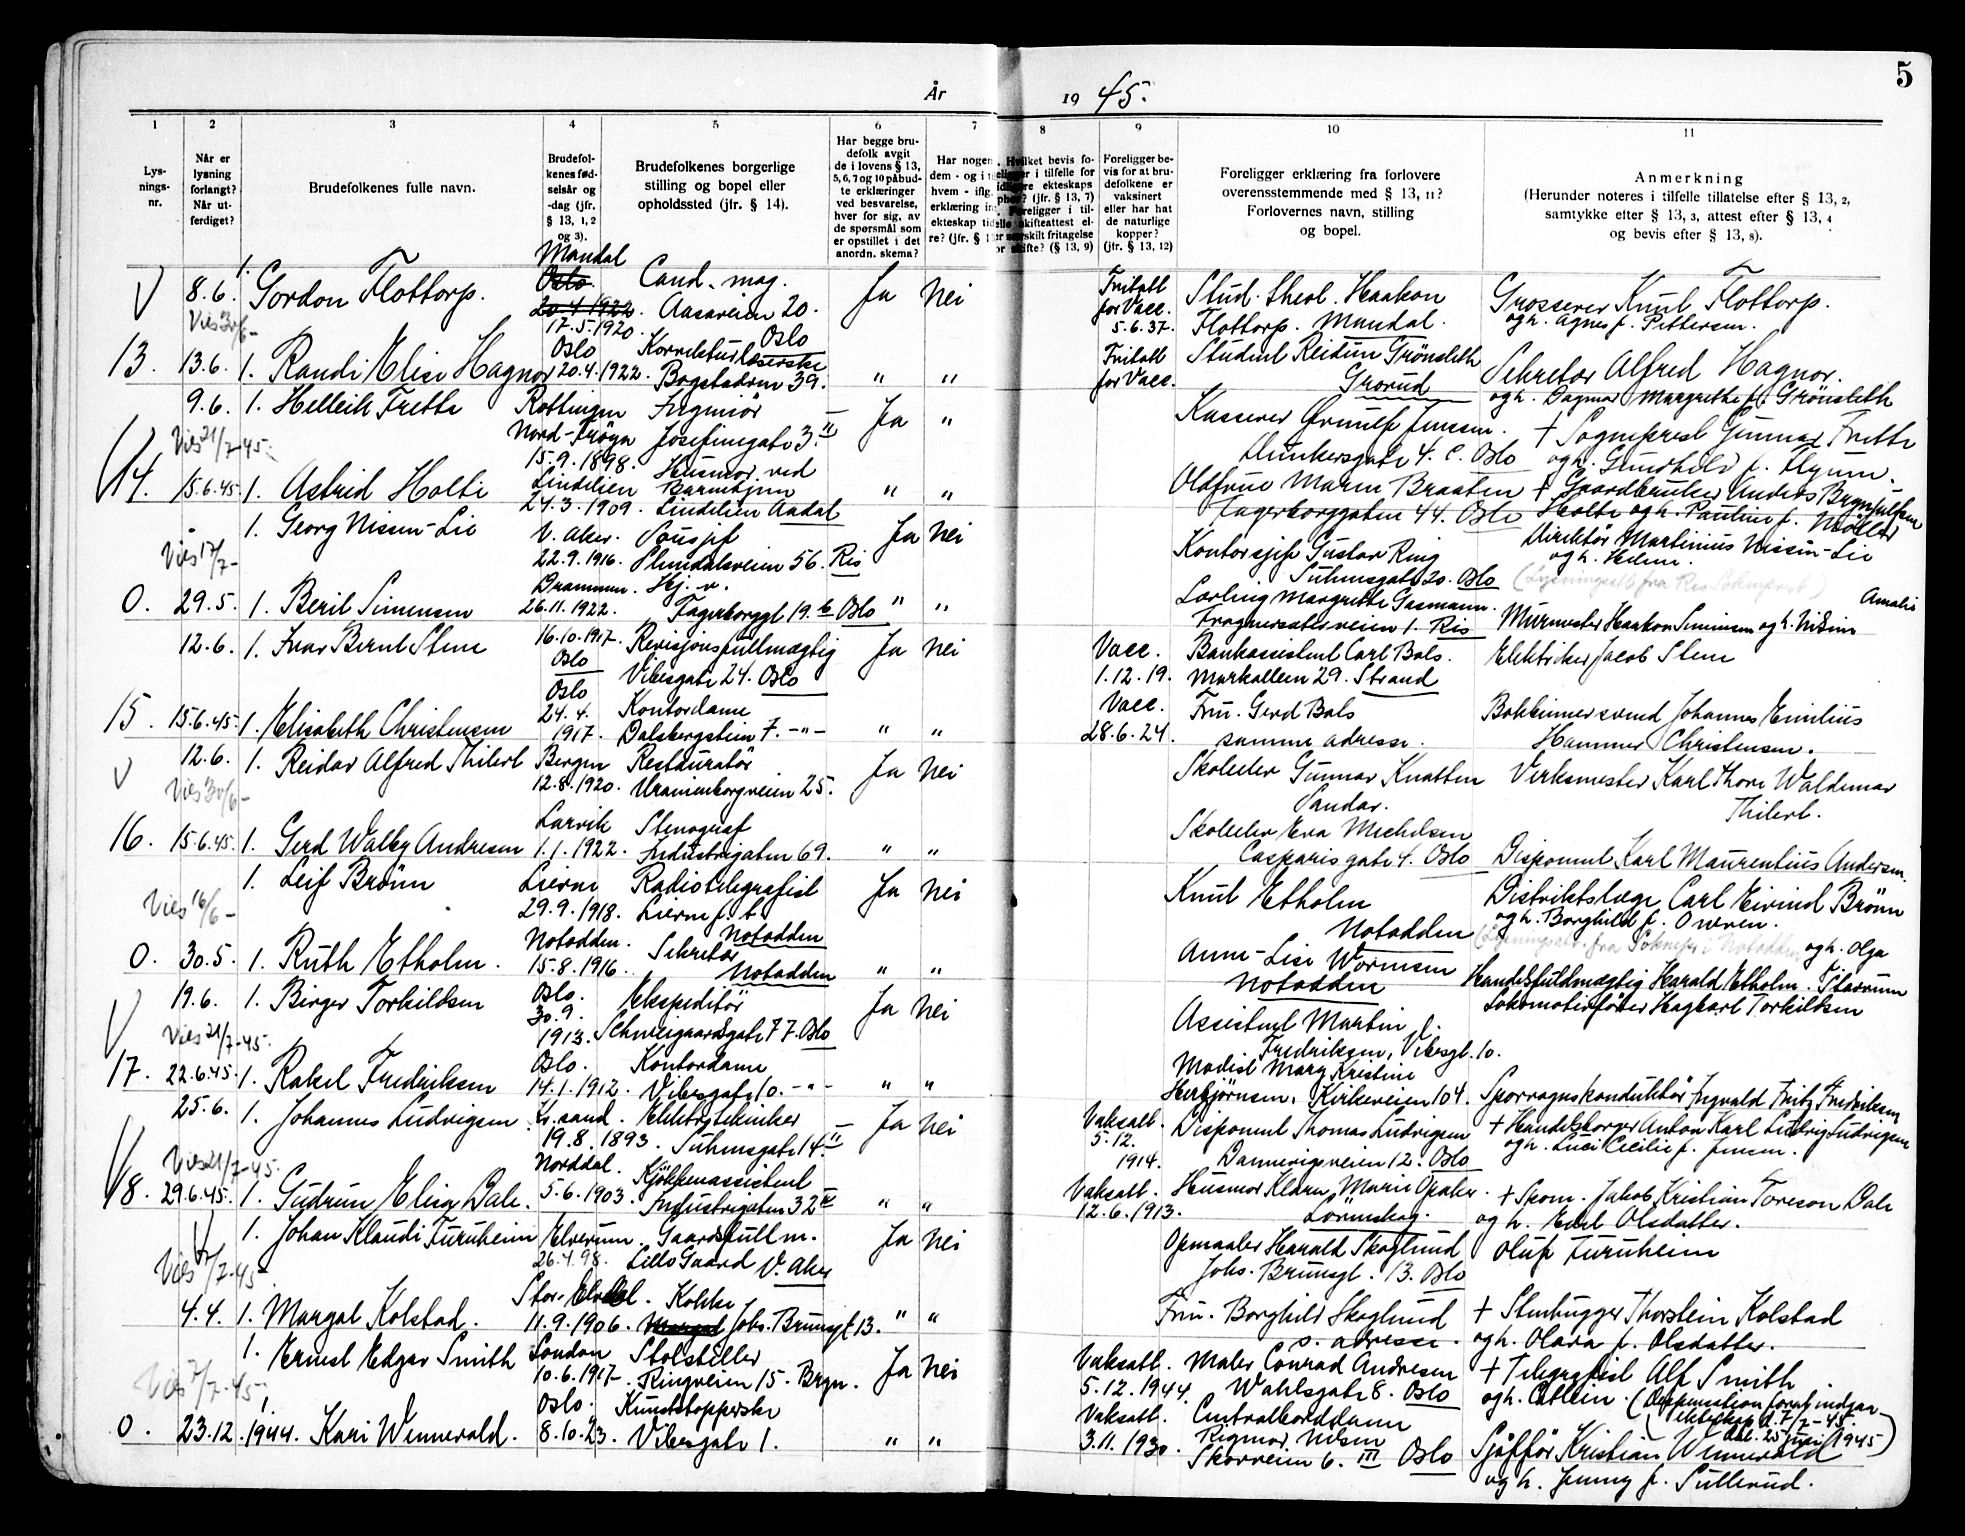 5
År 1945.
1 2 3 4 5 6 7 8 9 10 11
Lys-
nings-
nr.
Når er
lysning
forlangt?
Når ut-
ferdiget?
Brudefolkenes fulle navn.
Brudefol-
kenes fød-
selsår og
-dag (jfr.
§ 13, 1, 2
og 3).
Brudefolkenes borgerlige
stilling og bopel eller
opholdssted (jfr. § 14).
Har begge bru-
defolk avgit
de i lovens § 13,
5, 6, 7 og 10 påbud-
te erklæringer
ved besvarelse,
hver for sig, av
de spørsmål som
er opstillet i det
anordn. skema?
Foreligger be-
vis for at bru-
defolkene er
vaksinert
eller har hat
de naturlige
kopper?
(jfr. § 13, 12)
Foreligger erklæring fra forlovere
overensstemmende med § 13, 11?
Forlovernes navn, stilling
og bopel.
Anmerkning
(Herunder noteres i tilfelle tillatelse efter § 13, 2,
samtykke efter § 13, 3, attest efter § 13, 4
og bevis efter § 13, 8).
V 8.6. 1. Gordon Flottorp. Mandal Oslo 20.4.1922. 17.5.1920 Cand. mag. Aasaveien 20. Oslo Ja Nei Fritatt for Vacc. 5.6.37. Stud. theol. Haakon Flottorp. Mandal. Grosserer Knut Flottorp. og h. Agnes f. Pettersen.
Vies 30/6-
13. 13.6. 1. Randi Elise Hagnor Oslo 20.4.1922. Korrekturleserske Bogstadvn 39. " " Fritatt for Vacc. Student Reidun Grönsleth Grorud Sekretær Alfred Hagnor. og h. Dagmar Margrethe f. Grönsleth
9.6. 1. Helleik Frette Nord-Fröya 15.9.1898. Ingeniör Josefinegate 3. II Ja " Kasserer Jenssen. Munkersgate 4. C. Oslo † Sogneprest Gunnar Frette og h. Gunhild f.
Vies 21/7-45.
14. 15.6.45. 1. Astrid Holte Lindelien 24.3.1909. Husmor ved Barnehjem Lindelien Aadal " " Oldfrue Maren Braaten Fagerborggaten 44. Oslo † Gaardbruker Anders Holte og h. Pauline f. Möller
1. Georg Nissen-Lie V. Aker. 22.9.1916. Sousjef Slemdalsveien 56. Ris Ja Nei Kontorsjef Gustav Ring Suhmsgate 20. Oslo Direktör Martinius Nissen-Lie og h. Helene.
Vies 17/7-
0. 29.5. 1. Beril Simensen Drammen. 26.11.1922. Hj. v. Fagerborggt 19. b Oslo " " Margrethe Gasmann. Frognerseterveien 1. Ris Murmester Haakon Simensen og h. Amalie
12.6. 1. Ivar Bernt Stene 16.10.1917. Oslo Revisjonsfullmægtig Vibesgate 24. Oslo Ja Nei Vacc. 1.12.19. Bankassistent Carl Bals. Markalleen 29. Strand Elektriker Jacob Stene
15. 15.6.45. 1. Elisabeth Christensen Oslo 24.4. 1917. Kontordame Dalsbergstein 7. -"- " " Vacc. 28.6.24. Fru. Gerd Bals samme adresse. Bokbindersvend Johannes Emilius Hammer Christensen.
V 12.6. 1. Reidar Alfred Thilert Bergen 12.8.1920. Restauratör Uranienborgveien 25. Ja Nei Skoleelev Gunnar Knatten Sandar. Verksmester Karl Thore Waldemar Thilert.
Vies 30/6-
16. 15.6.45. 1. Gerd Walby Andresen Larvik 1.1.1922. Stenograf Industrigaten 69. " " Skoleelev Eva Michelsen Casparis gate 4. Oslo Disponent Karl Maurentius Andersen.
1. Leif Brönn Lierne 29.9.1918. Radiotelegrafist Lierne f. t. Notodden Ja Nei Knut Etholm Notodden Distriktslæge Carl Eivind Brönn og h. Borghild f. Owren.
Vies 16/6-
0. 30.5. 1. Ruth Etholm. Notodden. 15.8.1916. Sekretær Notodden " " Anne-Lise Wormsen Notodden Handelsfuldmægtig Harald Etholm. og h. Olga f. Stavrum
V 19.6. 1. Birger Torkildsen Oslo. 30.9. 1913. Ekspeditör Schweigaardsgate 77. Oslo Ja Nei Assistent Martin Fredriksen, Vibesgt. 10. Lokomotivförer Hagbart Torkildsen
Vies 21/7-45.
17. 22.6.45. 1. Rakel Fredriksen Oslo. 14.1.1912. Kontordame Vibesgate 10. -"- " " Modist Mary Kristine Herbjörnsen, Kirkeveien 104. Sporvognskonduktör Ingvald Fritz Fredriksen
25.6. 1. Johannes Ludvigsen Kr.sand. 19.8.1893. Elektrotekniker Suhmsgate 14. II Ja Nei Vaksatt. 5.12. 1914. Disponent Thomas Ludvigsen Dannevigsveien 12. Oslo † Handelsborger Anton Karl Ludvig Ludvigsen og h. Cecilie f. Jensen.
Vies 21/7-45.
18. 29.6.45. 1. Gudrun Elisa Dale. Norddal. 5.6.1903. Kjökkenassistent Industrigaten 32 " " Vaksatt. 12.6.1913. Husmor Klara Marie Opaker. Lörenskog. † Spom. Jakob Kristian Toreson Dale og h. Olsdatter.
1. Johan Klaudi Furuheim Elverum. 26.4.98. Gaardsfullm. Lillo Gaard V. Aker Ja Nei Opmaaler Harald Skoglund Johs. Brunsgt. 13. Oslo Oluf Furuheim
Vies /7-45
4.4. 1. Margat Kolstad. Stor-Elvdal. 11.9.1906. Kokke Margat Johs. Brunsgt 13. " " Fru. Borghild Skoglund s. adresse. † Stenhugger Thorstein Kolstad og h. Olava f. Olsdatter.
1. Ernest Edgar Smith London 10.6.1917- Stolstiller Ringveien 15. Bryn. Ja Nei Vaksatt. 5.12.1944. Maler Conrad Andresen Wahlsgate 8. Oslo † Telegrafist Alf Smith og h. Catlein. (Dispensation forat indgaa ekteskap d. 7/7-45. dat. 25 juni 1945)
Vies 7/7-45
0. 23.12.1944. 1. Kari Wennevald. Oslo. 8.10.23. Kunststopperske Vibesgate 1. " " Vaksatt. 3.11.1930. Centralborddame Rigmor Nilsen Skovveien 6. III Oslo Sjåfför Kristian Wennevald og h. Jenny f. Sullerud.